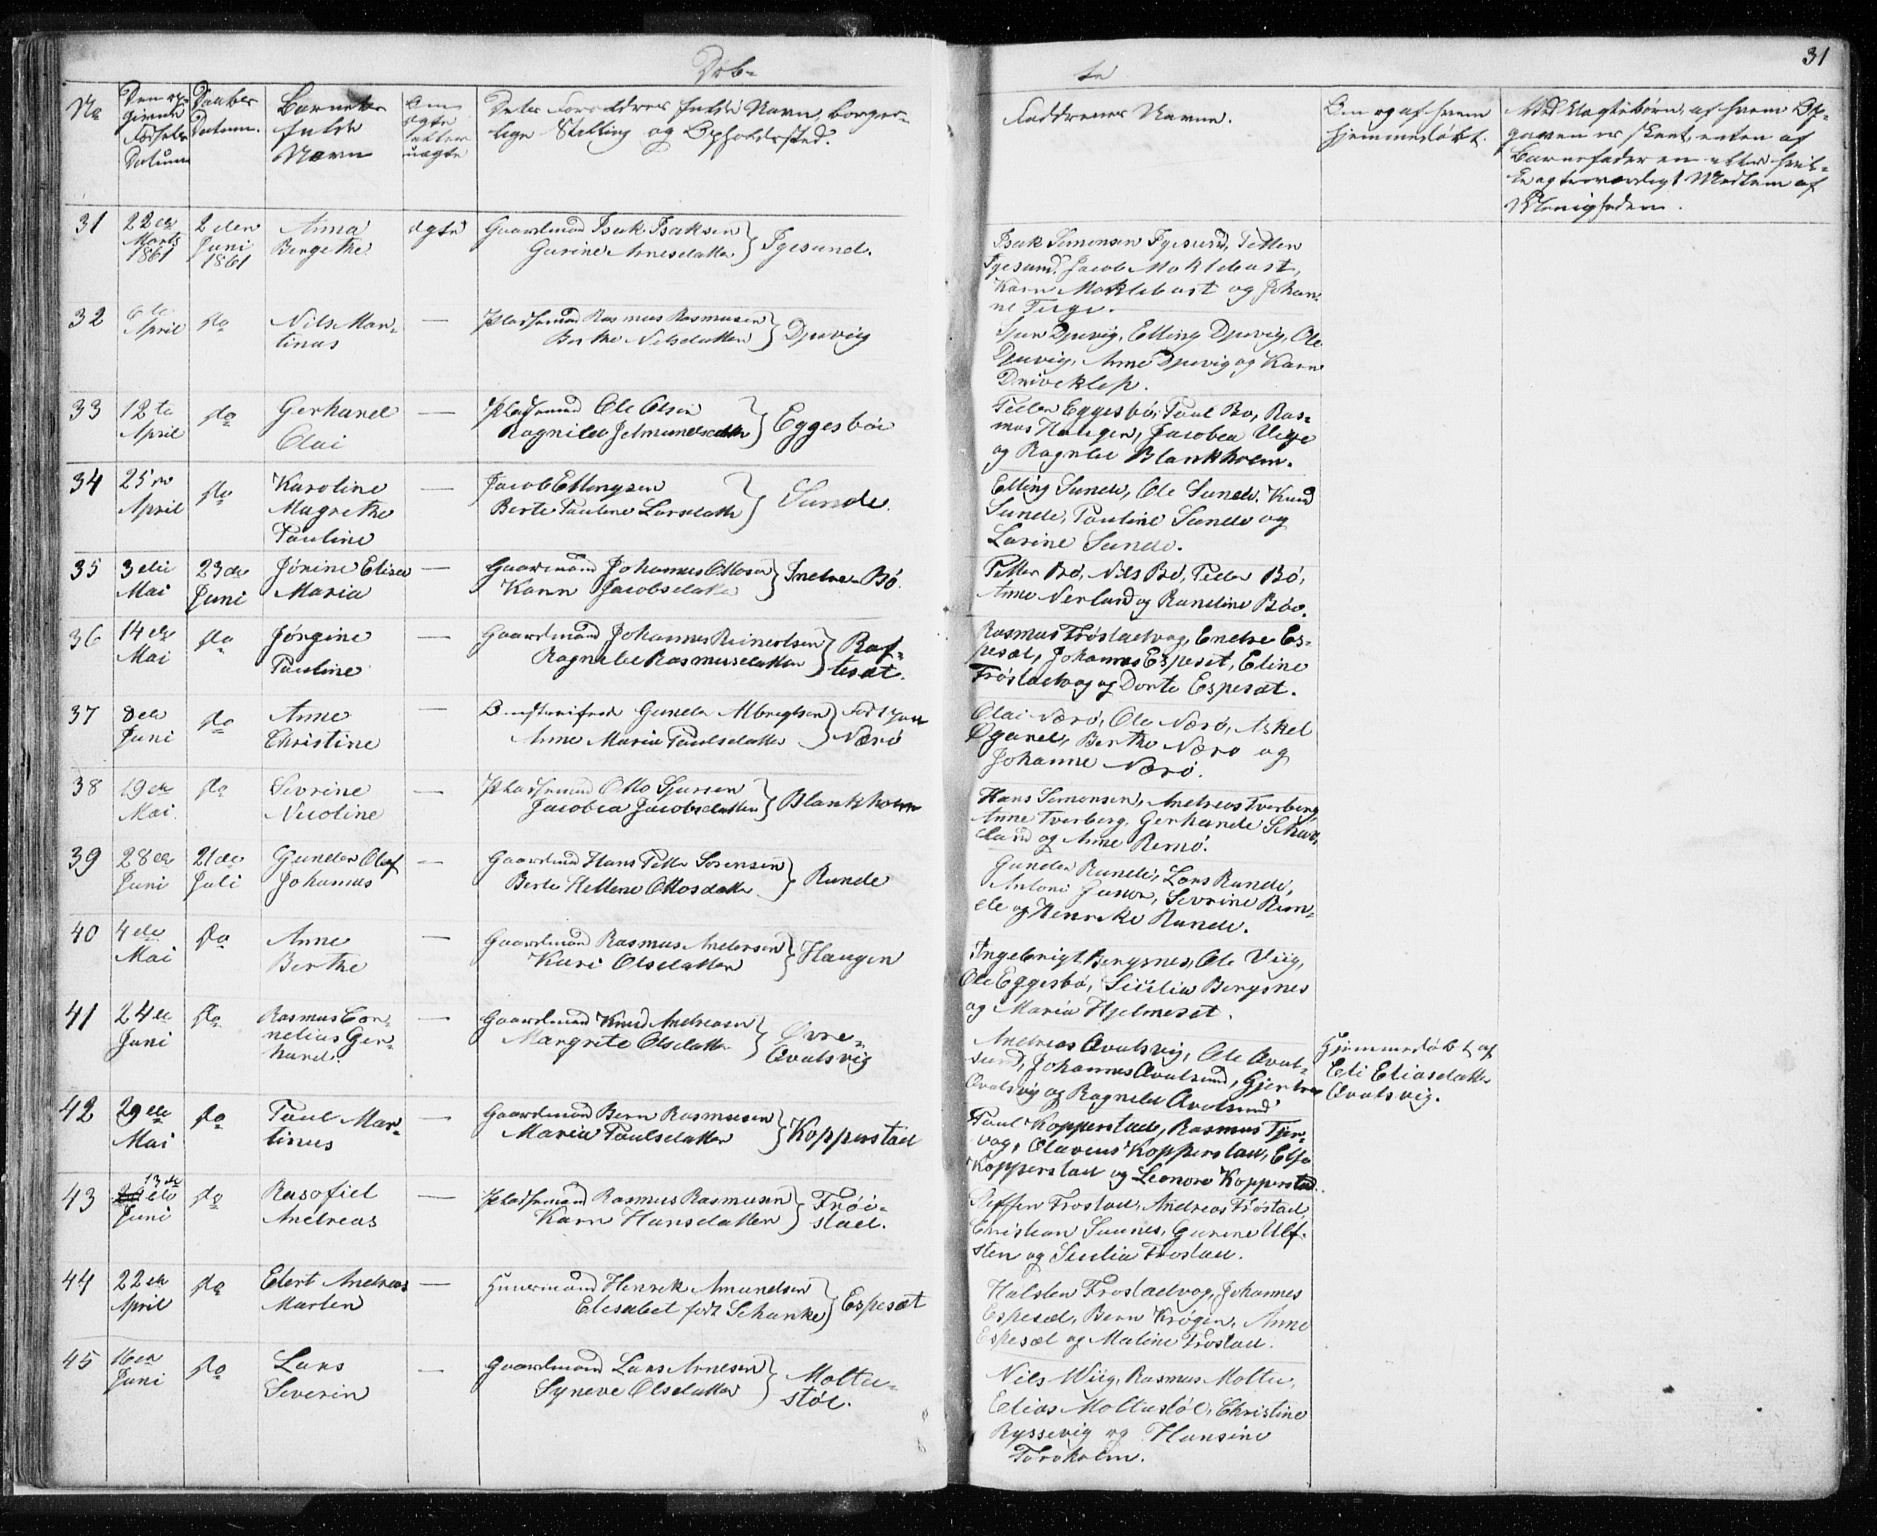 Døb-
te
31
No
Den op-
givne
Fødsels
Datum
Daabs
Datum.
Barnets
fulde
Navn
Om
ægte
eller
uægte
Dets Forældres fulde Navn, borger-
lige Stilling og Opholdssted.
Faddrenes Navne.
Om og af hvem
hjemmedøbt.
31
22de
Marts
1861
2den
Juni
1861
Anna
Bergethe
ægte
Gaardmand Isak Isaksen
Gurine Arnesdatter } Igesund.
Isak Simonsen Igesund, Petter
Igesund, Jacob Moklebust,
Karn Moklebust og Johan-
ne Teige.
32
6te
April
do
Nils Mar-
tinus
—
Pladsemand Rasmus Rasmusen
Berthe Nilsdatter } Djuvig
Sjur Djuvig, Elling Djuvig, Ole
Djuvig, Anne Djuvig og Karn
Driveklep.
33
12te
April
do
Gerhard
Olai
—
Pladsemand Ole Olsen
Ragnild Jetmundsdatter } Eggesbøe
Peder Eggesbø, Paul Bø, Ras-
mus Haugen, Jacobea Teige
og Ragnild Blankholm.
34
25de
April
do
Karoline
Magrethe
Pauline
—
Jacob Ellingsen
Berte Pauline Larsdatter } Sunde.
Elling Sunde, Ole Sunde, Knud
Sunde, Pauline Sunde og
Larine Sunde.
35
3die
Mai
23de
Juni
Jørine Elisa
Maria
—
Gaardmand Johannes Ottosen
Karn Jacobsdatter } Indre-Bø.
Petter Bø, Nils Bø, Peder Bø,
Anne Nerland og Randine Bøe.
36
14de
Mai
do
Jørgine
Pauline
—
Gaardmand Johannes Reinertsen
Ragnild Rasmusdatter } Raf-
tesæt.
Rasmus Frøstadvog, Endre Es-
pesæt, Johannes Espeset, Eline
Frøstadvog og Dorte Espesæt.
37
8de
Juni
do
Anne
Christine
—
Gunder Albregtsen
Anne Maria Paulsdatter } Nærø
Olai Nærø, Ole Nærø, Askel
Øgard, Berthe Nærø og
Johanne Nærø.
38
19de
Mai.
do
Sevrine
Nicoline
—
Pladsemand Otto Sjursen
Jacobea Jacobsdatter } Blankholm
Hans Simonsen, Andreas Tverberg
Anne Tverberg, Gerharde Skav-
land og Anne Remø.
39
28de
Juni
21de
Juli
Gunder Olaf
Johannes
—
Gaardmand Hans Petter Sørensen
Berte Hellene Ottosdatter } Runde
Gunder Runde, Lars Runde,
Antoni Runde, Sevrine Run-
de og Henrike Runde.
40
4de
Mai
do
Anne
Berthe
—
Gaardmand Rasmus Andersen
Kari Olsdatter } Haugen
Ingebrigt Bergsnes, Ole Viig,
Ole Eggesbø, Sicilia Bergsnes
og Maria Hjelmeset.
41
24de
Juni
do
Rasmus Cor-
nelius Ger-
hard.
—
Gaardmand Knud Andreasen
Margrete Olsdatter } Øvre-
Qvalsvig
Andreas Qvalsvig, Ole Qval-
sund, Johannes Qvalsund, Gjertrud
Qvalsvig og Ragnild Qvalsund
Hjemmedøbt af
Eli Eliasdatter
Qvalsvig.
42
29de
Mai
do
Paul Mar-
tinus
—
Gaardmand Bern Rasmusen
Maria Paulsdatter } Kopperstad
Paul Kopperstad, Rasmus Tjer-
vog, Olavus Kopperstad, Else
Kopperstad og Leonore Kopperstad.
43
13de
Juni
do
Rasofiel
Andreas
—
Pladsemand Rasmus Rasmusen
Karn Hansdatter } Frøi-
stad.
Steffen Frostad, Andreas Frøstad,
Christian Saunes, Gurine Ulf-
sten og Sicilia Frostad.
44
22de
April
do
Elert Andreas
Martin
—
Huusmand Henrik Amundsen
Elisabet født Schanke } Espesæt
Halsten Frostadvog, Johannes
Espesæt, Bern Krøgen, Anne
Espesæt og Maline Frostad.
45
16de
Juni
do
Lars
Severin
—
Gaardmand Lars Arnesen
Syneve Olsdatter } Moltu-
støl.
Nils Wiig, Rasmus Moltu,
Elias Moltustøl, Christine
Ryssevig og Hansine
Torvholm.